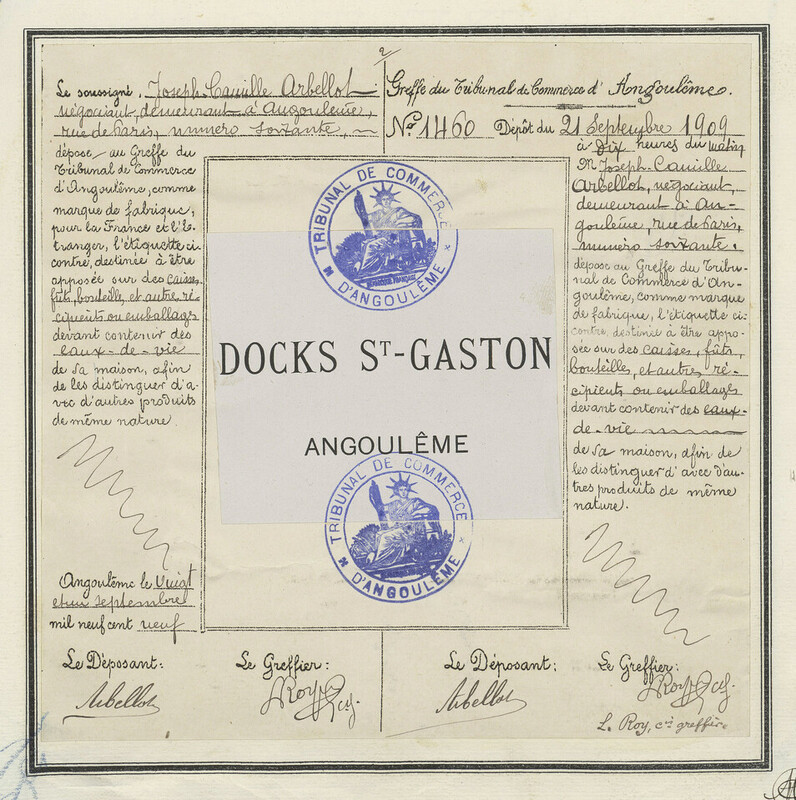 2
Le soussigné, Joseph Camille Arbellot
négociant, demeurant à Angoulême,
rue de Paris, numéro soixante,
dépose au Greffe du
Tribunal de Commerce
d'Angoulême, comme
marque de fabrique,
pour la France et l'É-
tranger, l'étiquette ci-
contre, destinée à être
apposée sur des caisses,
fûts, bouteille, et autres ré-
cipients ou emballages
devant contenir des
eaux-de-vie
de sa maison, afin
de les distinguer d'a-
vec d'autres produits
de même nature.
Angoulême le Vingt
et un septembre
mil neuf cent neuf
Le Déposant:
Arbellot
Le Greffier:
TRIBUNAL DE COMMERCE
D'ANGOULÊME
DOCKS ST-GASTON
ANGOULÊME
TRIBUNAL DE COMMERCE
D'ANGOULÊME
Greffe du Tribunal de Commerce d'Angoulême.
No. 1460 Dépôt du 21 Septembre 1909
à dix heures du matin
M Joseph Camille
Arbellot, négociant,
demeurant à An-
goulême, rue de Paris,
numéro soixante.
dépose au Greffe du Tribu-
nal de Commerce d'An-
goulême, comme marque
de fabrique, l'étiquette ci-
contre, destinée à être appo-
sée sur des caisses, fûts,
bouteilles, et autres ré-
cipients ou emballages
devant contenir des eaux-
de-vie
de sa maison, afin de
les distinguer d'avec d'au-
tres produits de même
nature.
Le Déposant:
Arbellot
Le Greffier:
L. Roy, cis greffier